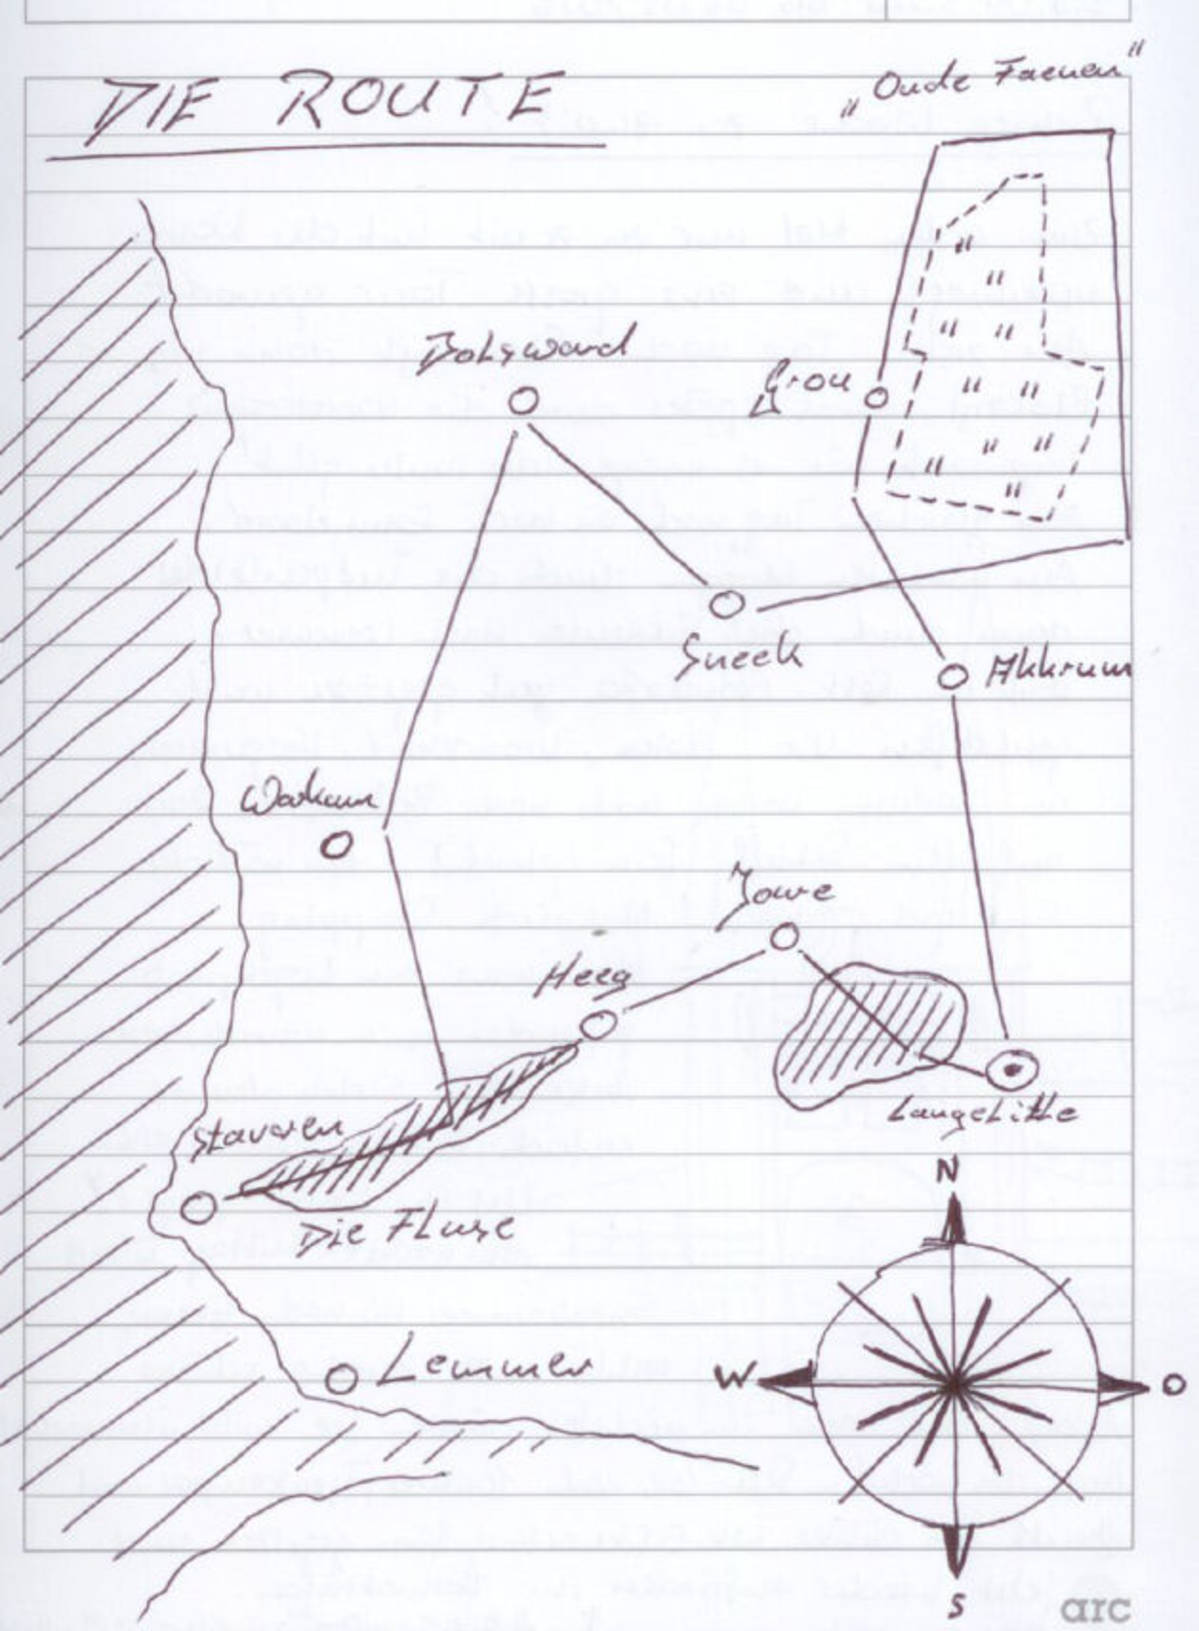 DIE ROUTE
„Oude Faenen"
Bolsward
Grou
Sneek
Akkrum
Workum
Jowe
Heeg
LangeLitte
Stavoren
Die Fluse
Lemmer
N
W
O
S
arc